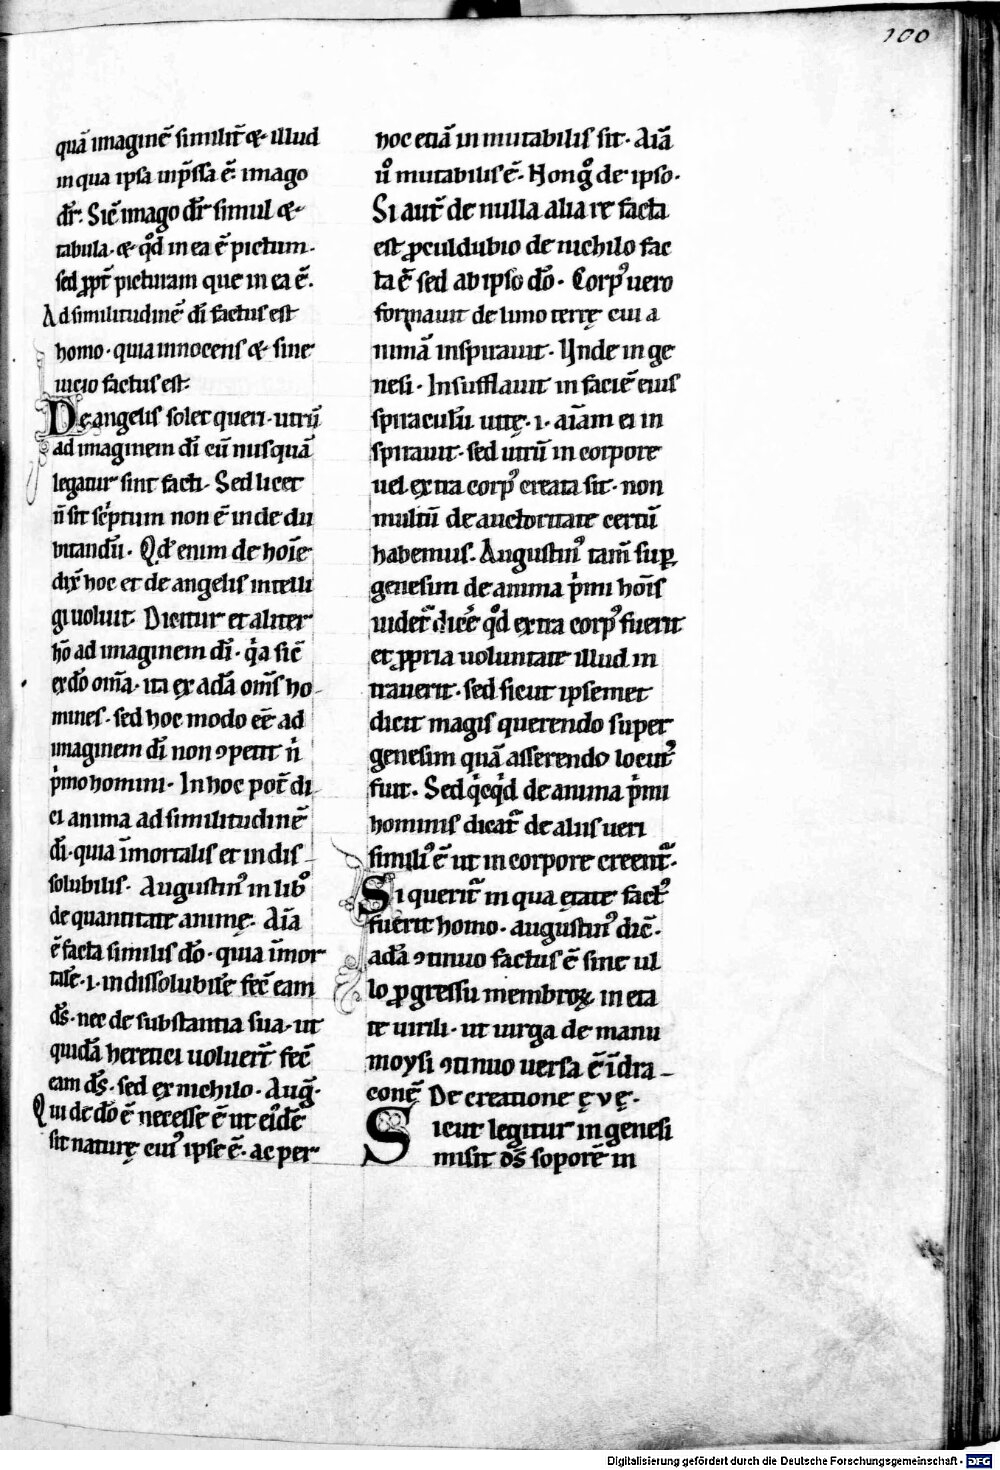 100
quā imaginē similit̄ &· illud
in qua ipsa inp̄ssa ē· imago
dr̄· Sic̄ imago dr̄ simul &
tabula· & qd̄ in ea ē pictum·
sed ꝓpt̄ picturam que in ea ē·
Ad similitudinē dī factus est
homo· quia innocens & sine
uicio factus est·
De angelis solet queri· utrū
ad imaginem dī cū nusquā
legatur sint facti· Sed licet
n̄ sit sc̓ptum non ē inde du
bitandū· Qd̓ enim de hoīe
dix̄ hoc et de angelis intelli
gi uoluit· Dicitur et aliter
hō ad imaginem dī· qͥa sic̄
ex dō om̄a· ita ex adā om̄s ho-
mines· sed hoc modo eē ad
imaginem dī non ꝯpetit nͥ
pͥmo homini· In hoc pot̄ di-
ci anima ad similitudinē
dī· quia īmortalis et indis-
solubilis· Augustin᾽ in lib᾽
de quantitate animę· Aīa
ē facta similis dō· quia īmor
tal̄e· i· indissolubil̄e fec̄ eam
ds̄· nec de substantia sua· ut
quidā heretici uoluer̄t fec̄
eam ds̄· sed ex nichilo· Auḡ·
Qui de dō ē necesse ē ut ei᾽dē
sit naturę cui᾽ ipse ē· ac per
hoc etiā inmutabilis sit· Aīā
u͛o mutabilis ē· Hon gͦ de ipso·
Si aut̄ de nulla alia re facta
est ꝓculdubio de nichilo fac
ta ē sed ab ipso dō· Corp᾽ uero
formauit de limo terrę cui a
nimā inspirauit· Unde in ge
nesi· Insufflauit in faciē eius
spiraculū uitę· i· aīam ei in
spirauit· sed utrū in corpore
uel extra corp᾽ creata sit· non
multū de auctoritate certū
habemus· Augustin᾽ tam̄ sup̱
genesim de anima pͥmi hoīs
uidet᷑ dic̄e qͦd extra corp᾽ fuerit
et ꝓpria uoluntate illud in
trauerit· sed sicut ipsemet
dicit magis querendo super
genesim quā asserendo locut᾽
fuit· Sed qͥcqͥd de anima pͥmi
hominis dicat᷑ de aliis ueri
simili᾽ ē ut in corpore creent᷑·
Si querit᷑ in qua ętate fact᾽
fuerit homo· augustin᾽ dic̄·
adā ꝯtinuo factus ē sine ul
lo ꝓgressu membroꝝ in eta
te uirili· ut uirga de manu
moysi ꝯtinuo uersa ē ī dra-
conē De creatione ęvę·
Sicut legitur in genesi
misit ds̄ soporē in
Digitalisierung gefördert durch die Deutsche Forschungsgemeinschaft - DFG